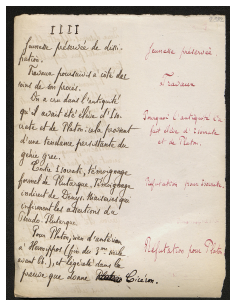 IIII
Jeunesse préservée de dissi-
pation.
Travaux poursuivis à côté des
soins de son procès.
On a cru dans l'antiquité
qu'il avait été élève d'Iso-
crate et de Platon: cela provient
d'une tendance persistante du
génie grec.
Entre Isocrate, témoignage
formel de Plutarque, témoignage
indirect de Denys. Réserves qui
infirment les assertions du
Pseudo-Plutarque
Pour Platon, rien d'antérieur
à Hermippos (fin du 3me siècle
avant C.), et légèreté dans la
preuve que donne Cicéron.
Jeunesse préservée
Travaux
Pourquoi l'antiquité l'a
fait élève de Isocrate
et de Platon.
Réfutation pour Isocrate
Réfutation pour Platon